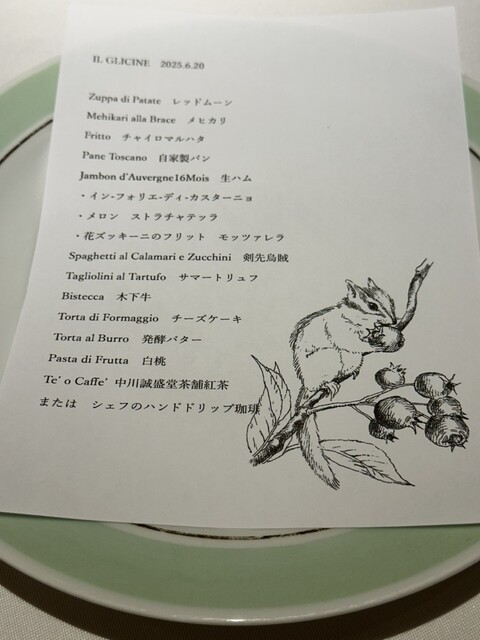 IL GLICINE 2025.6.20
Zuppa di Patate レッドムーン
Mehikari alla Brace メヒカリ
Fritto チャイロマルハタ
Pane Toscano 自家製パン
Jambon d'Auvergne16Mois 生ハム
・イン-フォリエ-ディ-カスターニョ
・メロン ストラチャテッラ
・花ズッキーニのフリット モッツァレラ
Spaghetti al Calamari e Zucchini 剣先烏賊
Tagliolini al Tartufo サマートリュフ
Bistecca 木下牛
Torta di Formaggio チーズケーキ
Torta al Burro 発酵バター
Pasta di Frutta 白桃
Te' o Caffe' 中川誠盛堂茶舗紅茶
または シェフのハンドドリップ珈琲